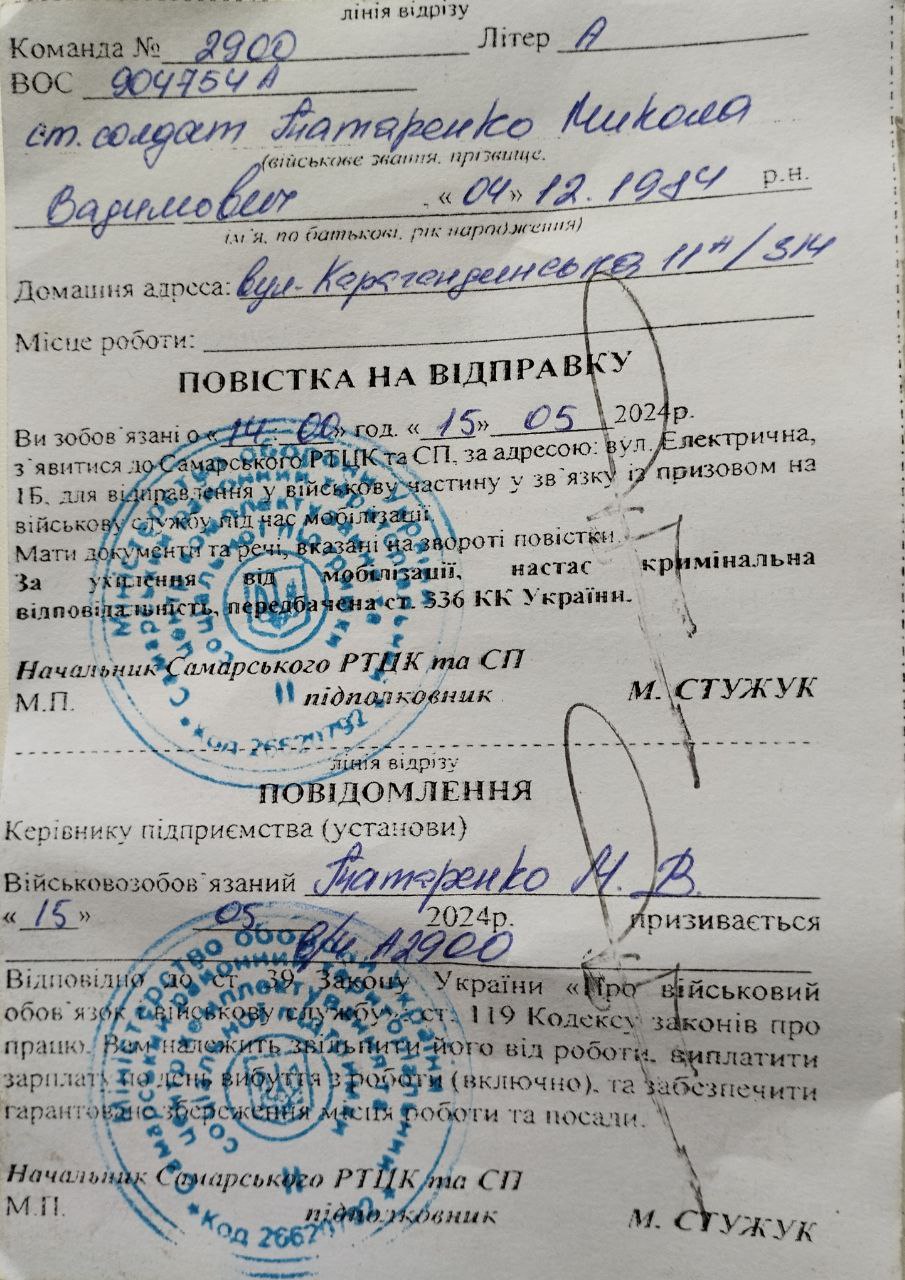 лінія відрізу
Команда № 2900 Літер А
ВОС 904754А
ст. солдат Татаренко Микола
(військове звання, прізвище,
Вадимович , «04» 12. 1984 р.н.
ім'я, по батькові, рік народження)
Домашня адреса: вул. Карагандинська 11А/314
Місце роботи:
ПОВІСТКА НА ВІДПРАВКУ
Ви зобов`язані о «14 00» год. «15» 05 2024р.
з`явитися до Самарського РТЦК та СП, за адресою: вул. Електрична,
1Б, для відправлення у військову частину у зв`язку із призовом на
військову службу під час мобілізації.
Мати документи та речі, вказані на звороті повістки.
За ухилення від мобілізації, настає кримінальна
відповідальність, передбачена ст. 336 КК України.
Начальник Самарського РТЦК та СП
М.П. підполковник М. СТУЖУК
лінія відрізу
ПОВІДОМЛЕННЯ
Керівнику підприємства (установи)
Військовозобов`язаний Татаренко М. В.
«15» 05 2024р. призивається
в/ч А2900
Відповідно до ст. 39 Закону України «Про військовий
обов`язок і військову службу», ст. 119 Кодексу законів про
працю, Вам належить звільнити його від роботи, виплатити
зарплату по день вибуття з роботи (включно), та забезпечити
гарантоване збереження місця роботи та посади.
Начальник Самарського РТЦК та СП
М.П. підполковник М. СТУЖУК